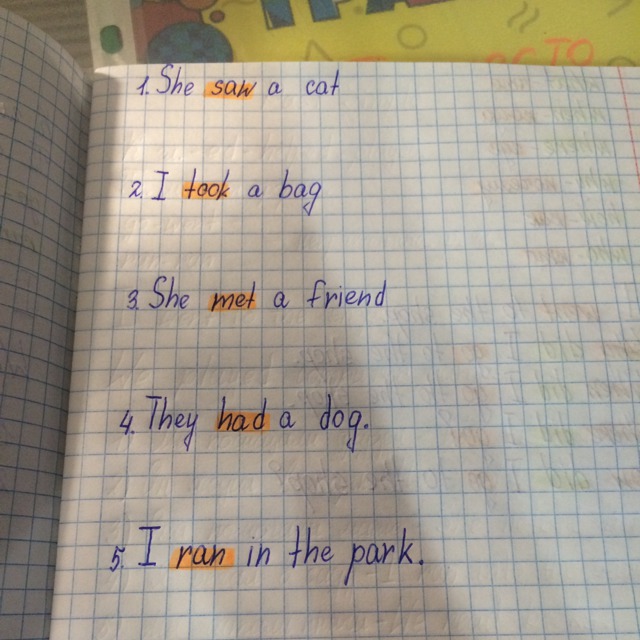 1. She saw a cat
2. I took a bag
3. She met a friend
4. They had a dog.
5. I ran in the park.